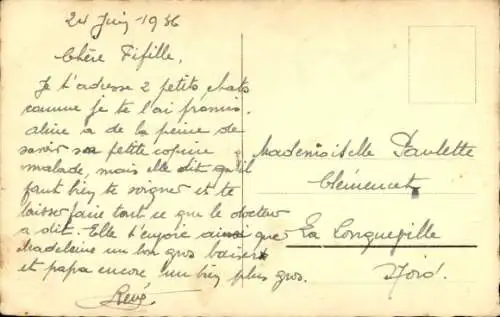 24 Juin 1936
Chère Fifille,
Je t'adresse 2 petits chats
comme je te l'ai promis.
aline a de la peine de
savoir sa petite copine
malade, mais elle dit qu'il
faut bien te soigner et te
laisser faire tout ce que le docteur
a dit. Elle t'envoie ainsi que
Madeleine un bon gros baiser
et papa encore un bien plus gros.
René
Mademoiselle Paulette
Clémencet
La Longueville